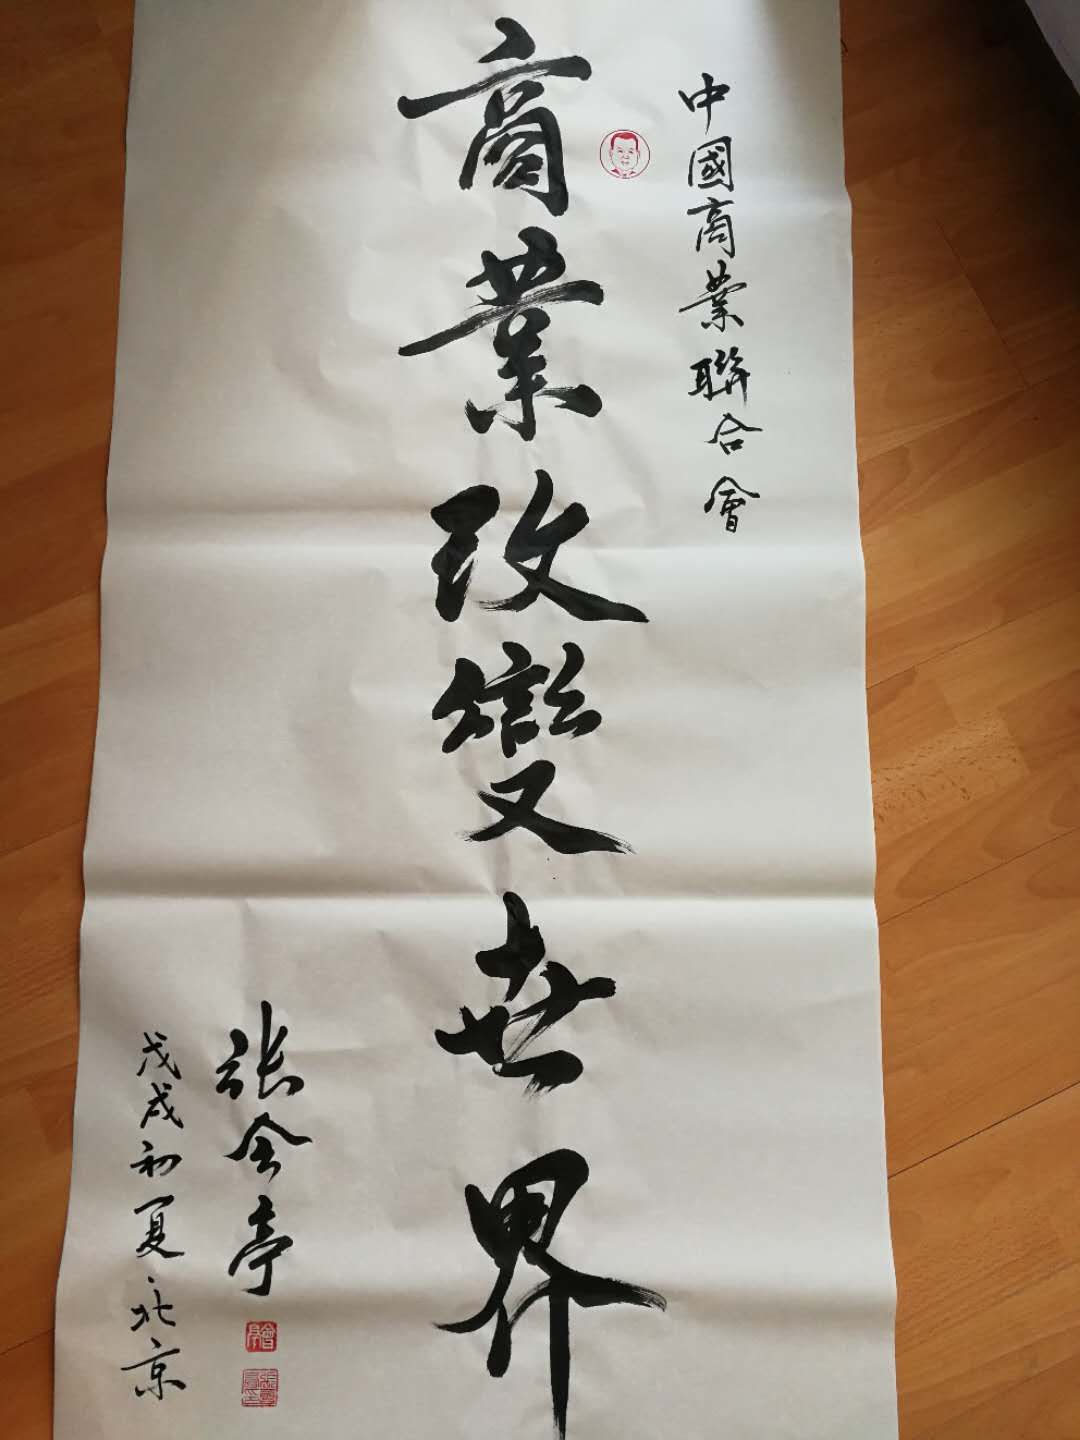 中國商業聯合會
商業改變世界
张会亭
戊戌初夏·北京